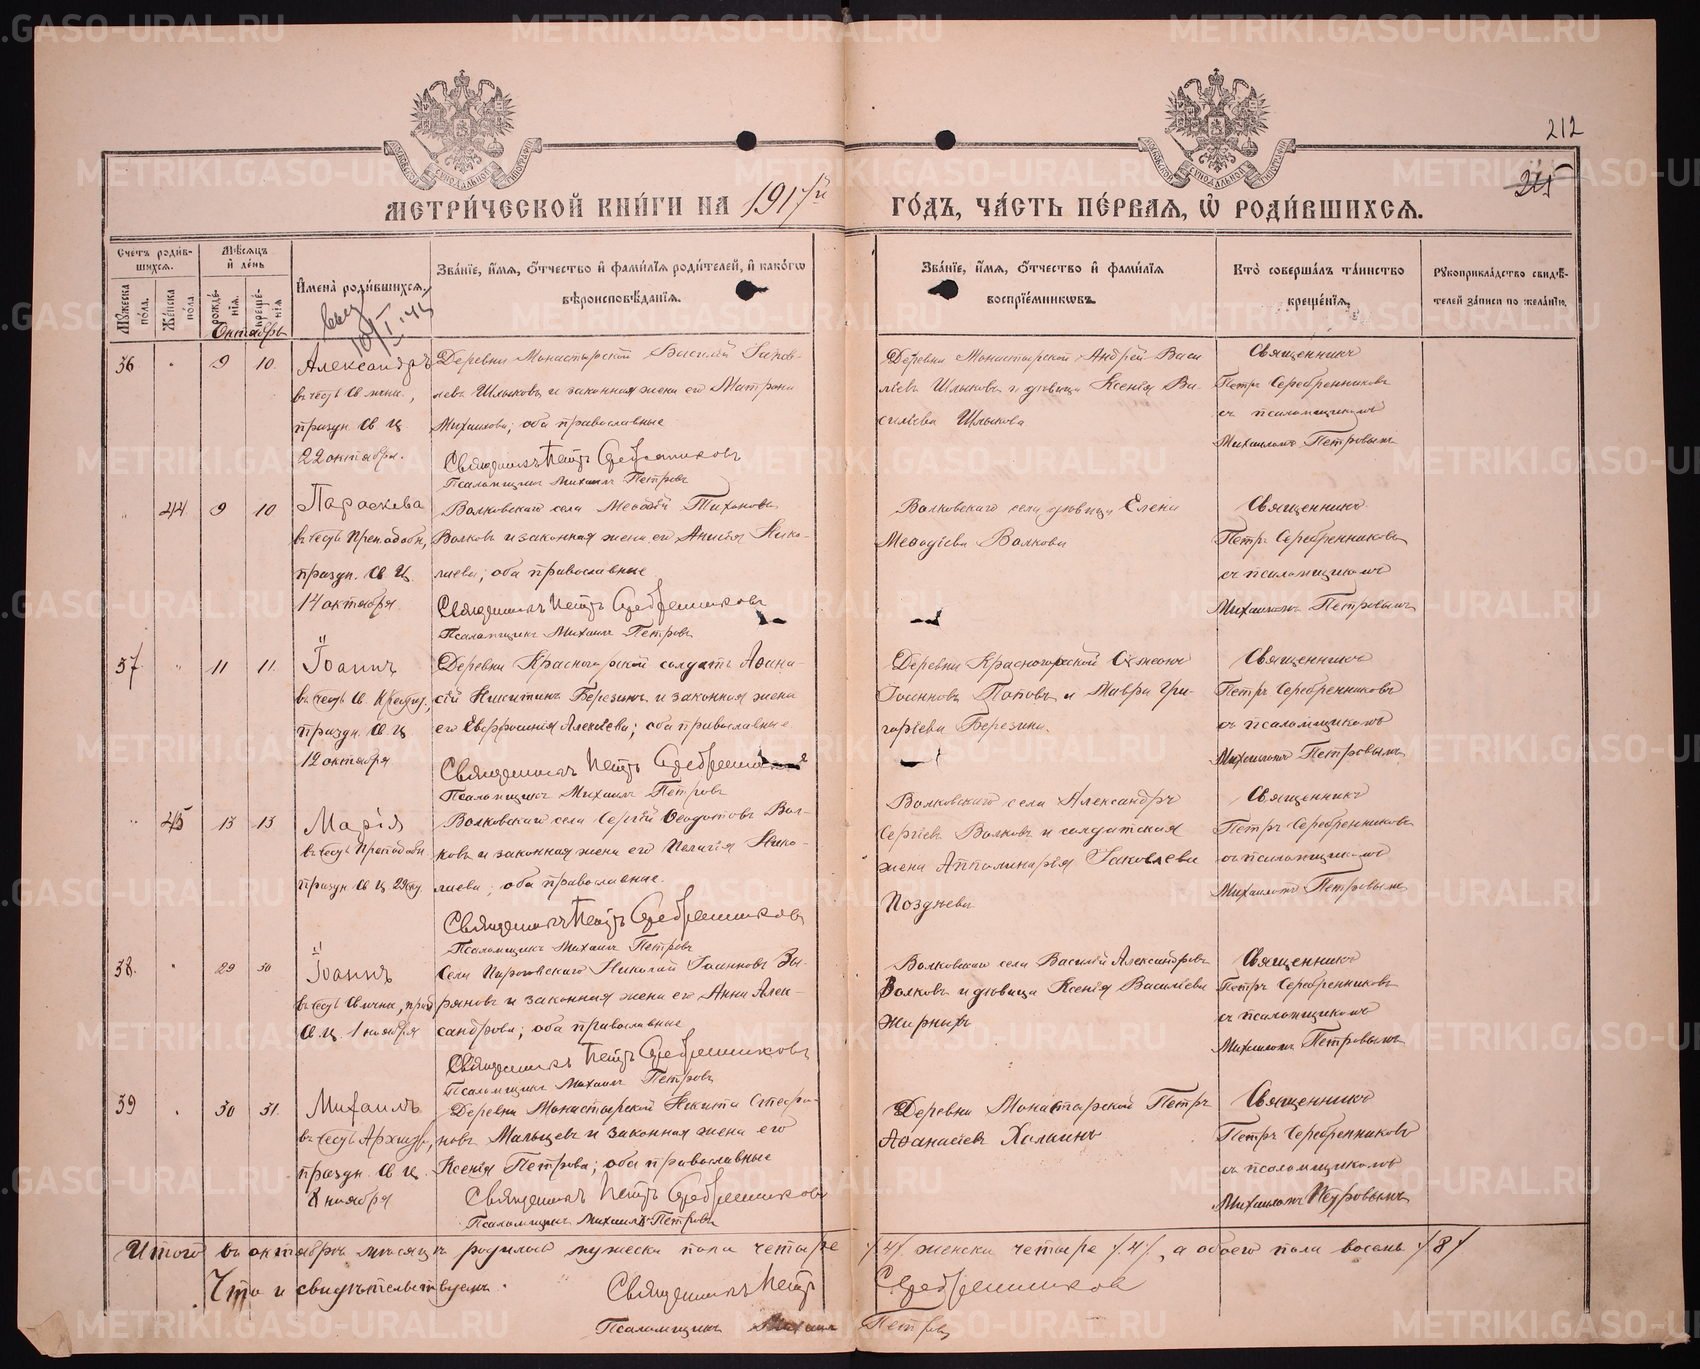 212
215
МЕТРИ́ЧЕСКОЙ КНИ́ГИ НА 1917й ГО́ДЪ, ЧА́СТЬ ПЕ́РВАЯ, Ѡ РОДИ́ВШИХСЯ.
Счетъ роди́вшихся.
Му́жеска по́ла.
Же́нска по́ла.
Мѣ́сяцъ и де́нь
рожде́нїя.
креще́нїя
Имена̀ роди́вшихся.
Зва́нїе, и́мя, о́тчество и фами́лїя роди́телей, и како́гѡ
вѣроисповѣ́данїя.
Зва́нїе, и́мя, о́тчество и фами́лїя
воспрїе́мникѡвъ.
Кто̀ соверша́лъ та́инство
креще́нїя.
Рукоприкла́дство свидѣ́-
телей за́писи по жела́нїю.
Октябрь
36 " 9 10.
Александръ
въ честь Св мчн.,
праздн Св Ц
22 октября.
Деревни Монастырской Василій Іаков-
левъ Шлыковъ и законная жена его Матрона
Михаилова; оба православные
Священникъ Петръ Серебренниковъ
Псаломщикъ Михаилъ Петровъ
Деревни Монастырской Андрей Васи
льевъ Шлыковъ и дѣвица Ксенія Ва-
сильева Шлыкова
Священникъ
Петръ Серебренниковъ
съ псаломщикомъ
Михаиломъ Петровымъ
" 44 9 10
Параскева
въ честь Преподобн,
праздн. Св Ц
14 октября
Волковскаго села Меѳодій Тихоновъ
Волковъ и законная жена его Анисія Нико-
лаева; оба православные
Священникъ Петръ Серебренниковъ
Псаломщикъ Михаилъ Петровъ
Волковскаго села дѣвица Елена
Меѳодіева Волкова
Священникъ
Петръ Серебренниковъ
съ псаломщикомъ
Михаиломъ Петровымъ
37. " 11 11.
Іоаннъ
праздн. Св Ц
12 октября
Деревни Красногорской солдатъ Аѳана-
сій Никитинъ Березинъ и законная жена
его Евфросинія Алексѣева; оба православные
Священникъ Петръ
Псаломщикъ Михаилъ Петровъ
Деревни Красногорской Симеонъ
Іоанновъ Поповъ и Мавра Гри-
горіева Березина.
Священникъ
Петръ Серебренниковъ
съ псаломщикомъ
Михаиломъ Петровымъ
" 45 13 13
Марія
въ честь Преподобн
праздн Св Ц 29 окт.
Волковскаго села Сергій Ѳеодотовъ Вол-
ковъ и законная жена его Пелагія Нико-
лаева; оба православные.
Священникъ Петръ Серебренниковъ
Псаломщикъ Михаилъ Петровъ
Волковскаго села Александръ
Сергіевъ Волковъ и солдатская
жена Апполинарія Іаковлева
Позднева
Священникъ
Петръ Серебренниковъ
съ псаломщикомъ
Михаиломъ Петровымъ
38. " 29 30
Іоаннъ
въ честь Св мчна,
Св. Ц. 1 ноября
Села Пироговскаго Николай Іоанновъ Зы-
ряновъ и законная жена его Анна Алек-
сандрова; оба православные
Священникъ Петръ Серебренниковъ
Псаломщикъ Михаилъ Петровъ
Волковскаго села Василій Александровъ
Волковъ и дѣвица Ксенія Васильева
Жирныхъ
Священникъ
Петръ Серебренниковъ
съ псаломщикомъ
Михаиломъ Петровымъ
39 . 30 31.
Михаилъ
праздн. Св Ц.
8 ноября
Деревни Монастырской Никита Стефа-
новъ Мальцевъ и законная жена его
Ксенія Петрова; оба православные
Священникъ Петръ Серебренниковъ
Псаломщикъ Михаилъ Петровъ
Деревни Монастырской Петръ
Аѳанасіевъ Халинъ
Священникъ
Петръ Серебренниковъ
съ псаломщикомъ
Михаиломъ Петровымъ
Итого въ октябрѣ мѣсяцѣ родилось мужеска пола четыре /4/ женска четыре /4/, а обоего пола восемь /8/
Что и свидѣтельствуемъ. Священникъ Петръ Серебренниковъ
Псаломщикъ Михаилъ Петровъ
METRIKI.GASO-URAL.RU